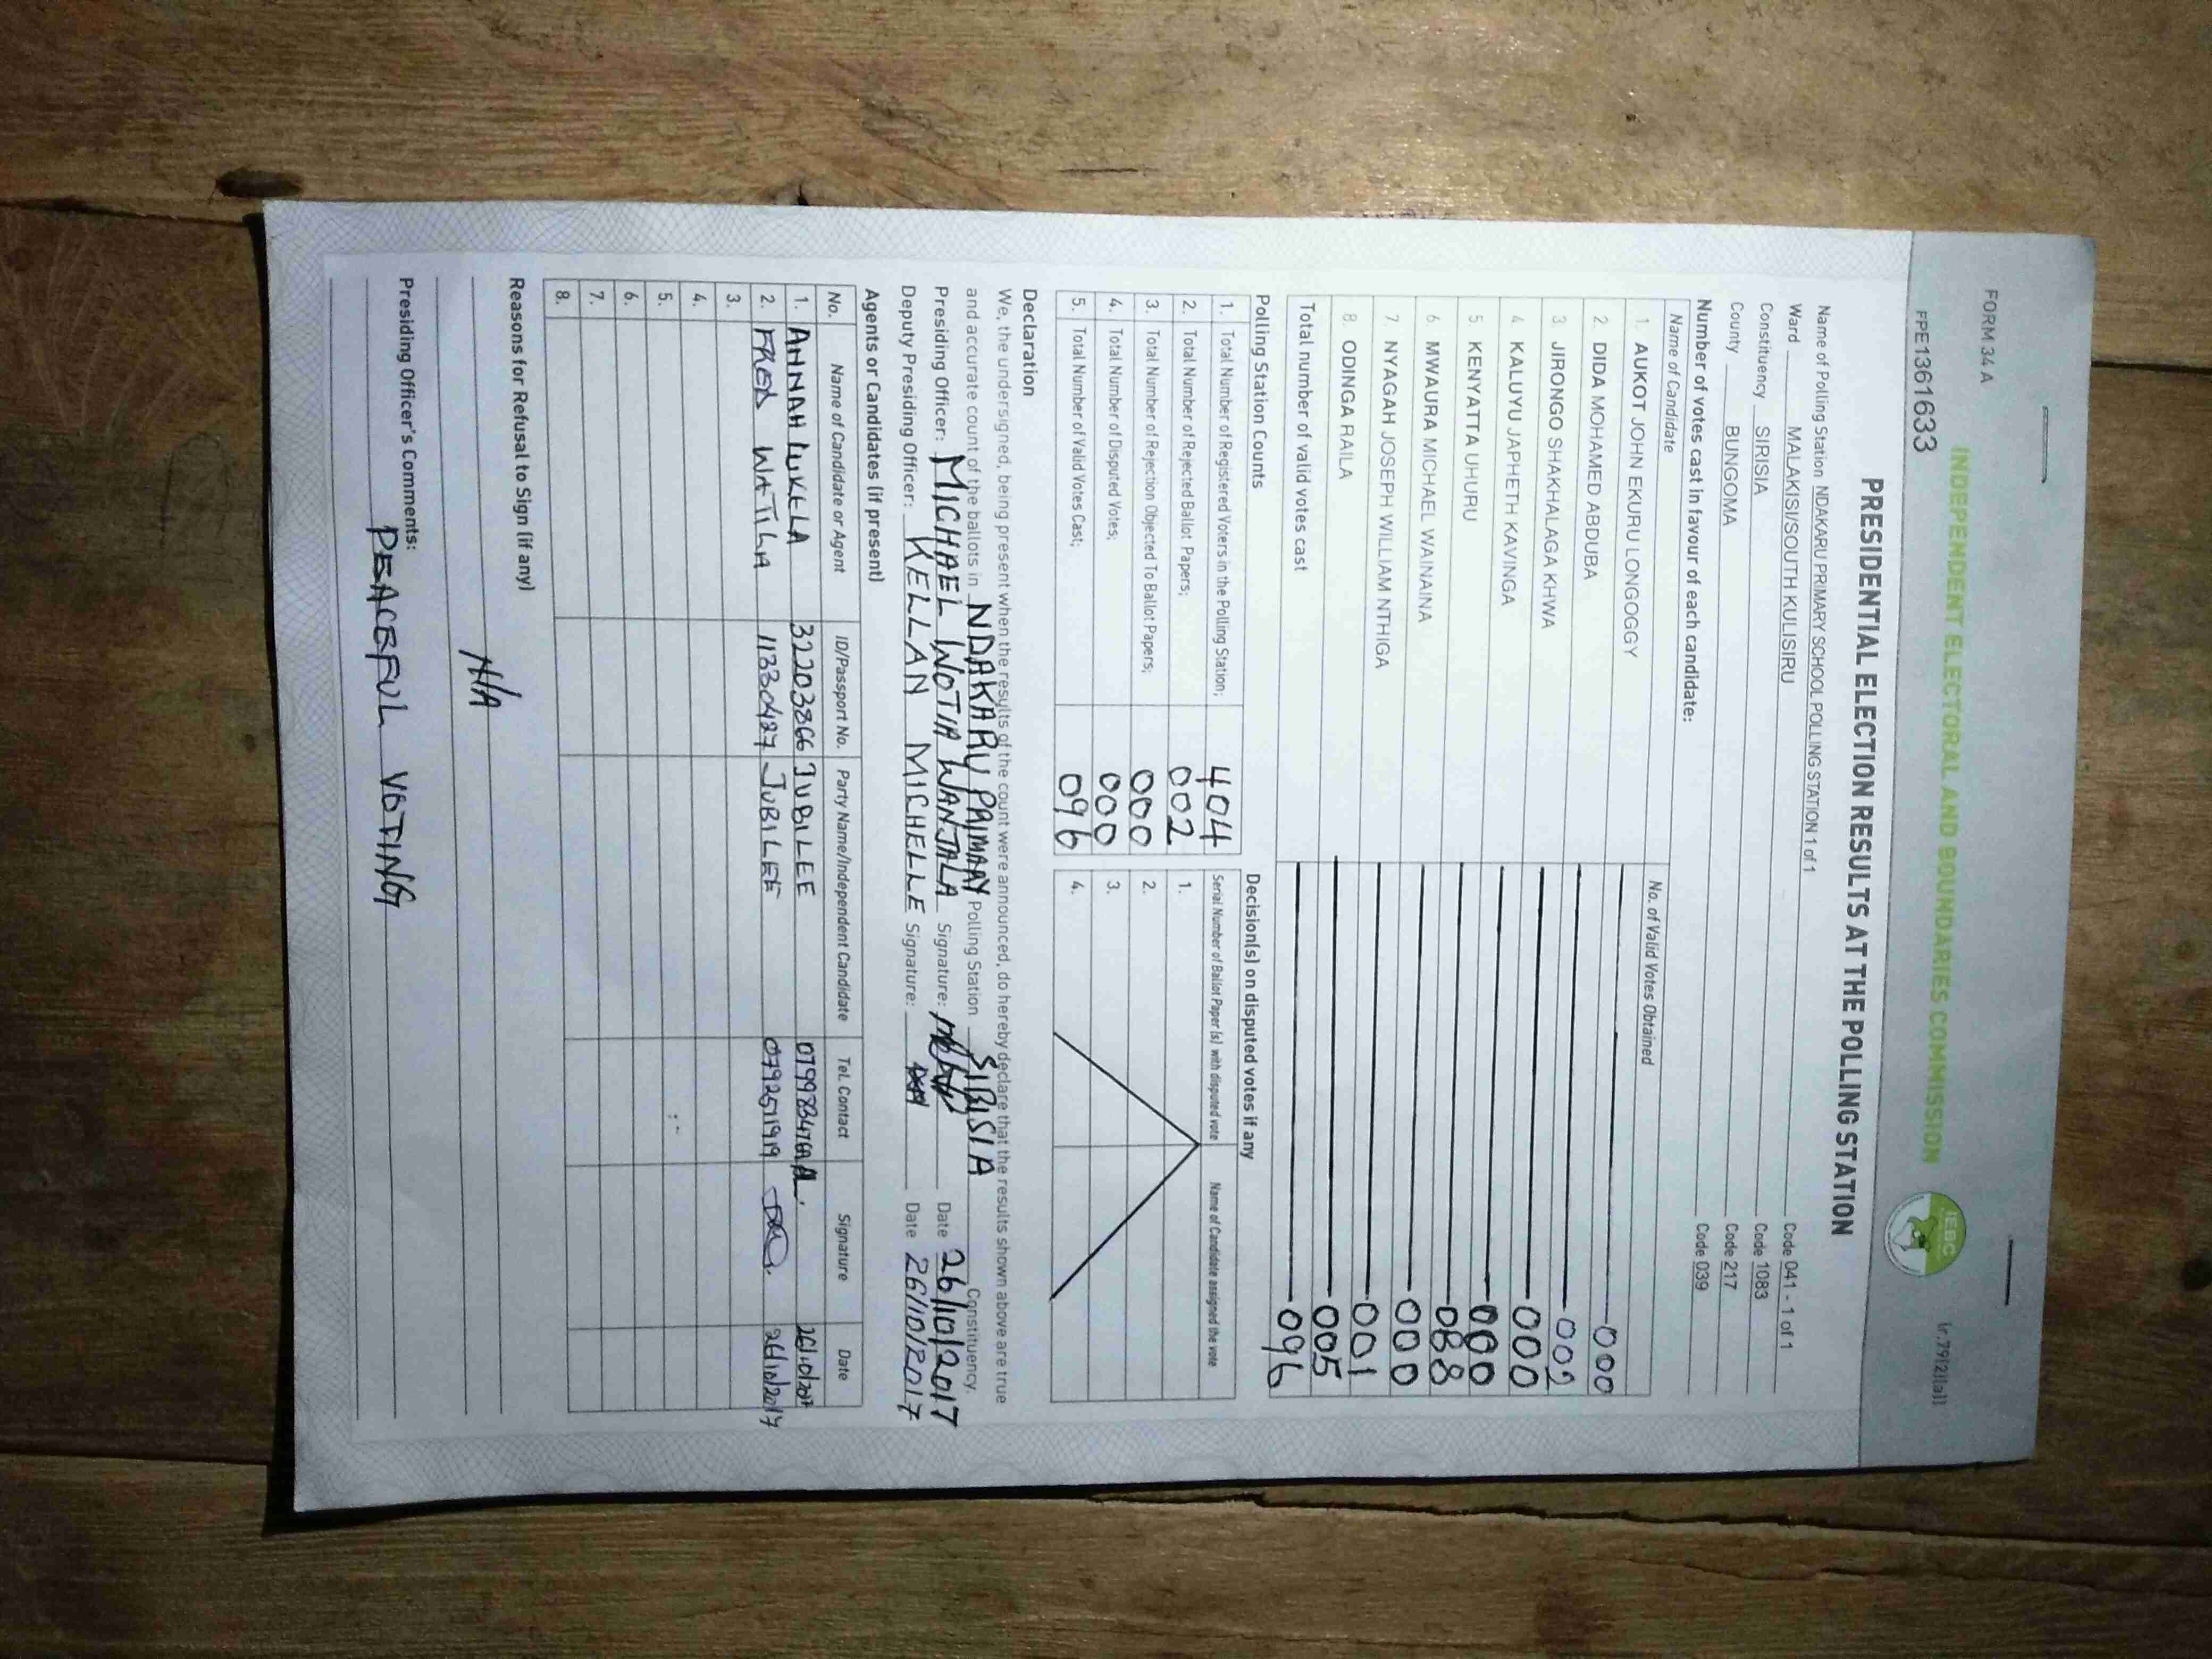 FORM 34 A
(r.79(2)(a))
INDEPENDENT ELECTORAL AND BOUNDARIES COMMISSION
IEBC
FPE1361633
PRESIDENTIAL ELECTION RESULTS AT THE POLLING STATION
Name of Polling Station NDAKARU PRIMARY SCHOOL POLLING STATION 1 of 1 Code 041 - 1 of 1
Ward MALAKISI/SOUTH KULISIRU Code 1083
Constituency SIRISIA Code 217
County BUNGOMA Code 039
Number of votes cast in favour of each candidate:
Name of Candidate No. of Valid Votes Obtained
1 AUKOT JOHN EKURU LONGOGGY 000
2 DIDA MOHAMED ABDUBA 002
3 JIRONGO SHAKHALAGA KHWA 000
4 KALUYU JAPHETH KAVINGA 000
5 KENYATTA UHURU 088
6 MWAURA MICHAEL WAINAINA 000
7 NYAGAH JOSEPH WILLIAM NTHIGA 001
8. ODINGA RAILA 005
Total number of valid votes cast 096
Polling Station Counts Decision(s) on disputed votes if any
Serial Number of Ballot Paper (s) with disputed vote Name of Candidate assigned the vote
1. Total Number of Registered Voters in the Polling Station; 404
2. Total Number of Rejected Ballot Papers; 002 1.
3. Total Number of Rejection Objected To Ballot Papers; 000 2.
4. Total Number of Disputed Votes; 000 3.
5. Total Number of Valid Votes Cast; 096 4.
Declaration
We, the undersigned, being present when the results of the count were announced, do hereby declare that the results shown above are true
and accurate count of the ballots in NDAKARU PRIMARY Polling Station SIRISIA Constituency.
Presiding Officer: MICHAEL WOTIA WANJALA Signature: Date 26/10/2017
Deputy Presiding Officer: KELLAN MICHELLE Signature: Date 26/10/2017
Agents or Candidates (if present)
No. Name of Candidate or Agent ID/Passport No. Party Name/Independent Candidate Tel. Contact Signature Date
1. ANNAH LUKELA 32203866 JUBILEE 26/10/2017
2. FRED WATILA 11330427 JUBILEE 0792511919 26/10/2017
3.
4.
5.
6.
7.
8.
Reasons for Refusal to Sign (if any)
N/A
Presiding Officer's Comments:
PEACEFUL VOTING